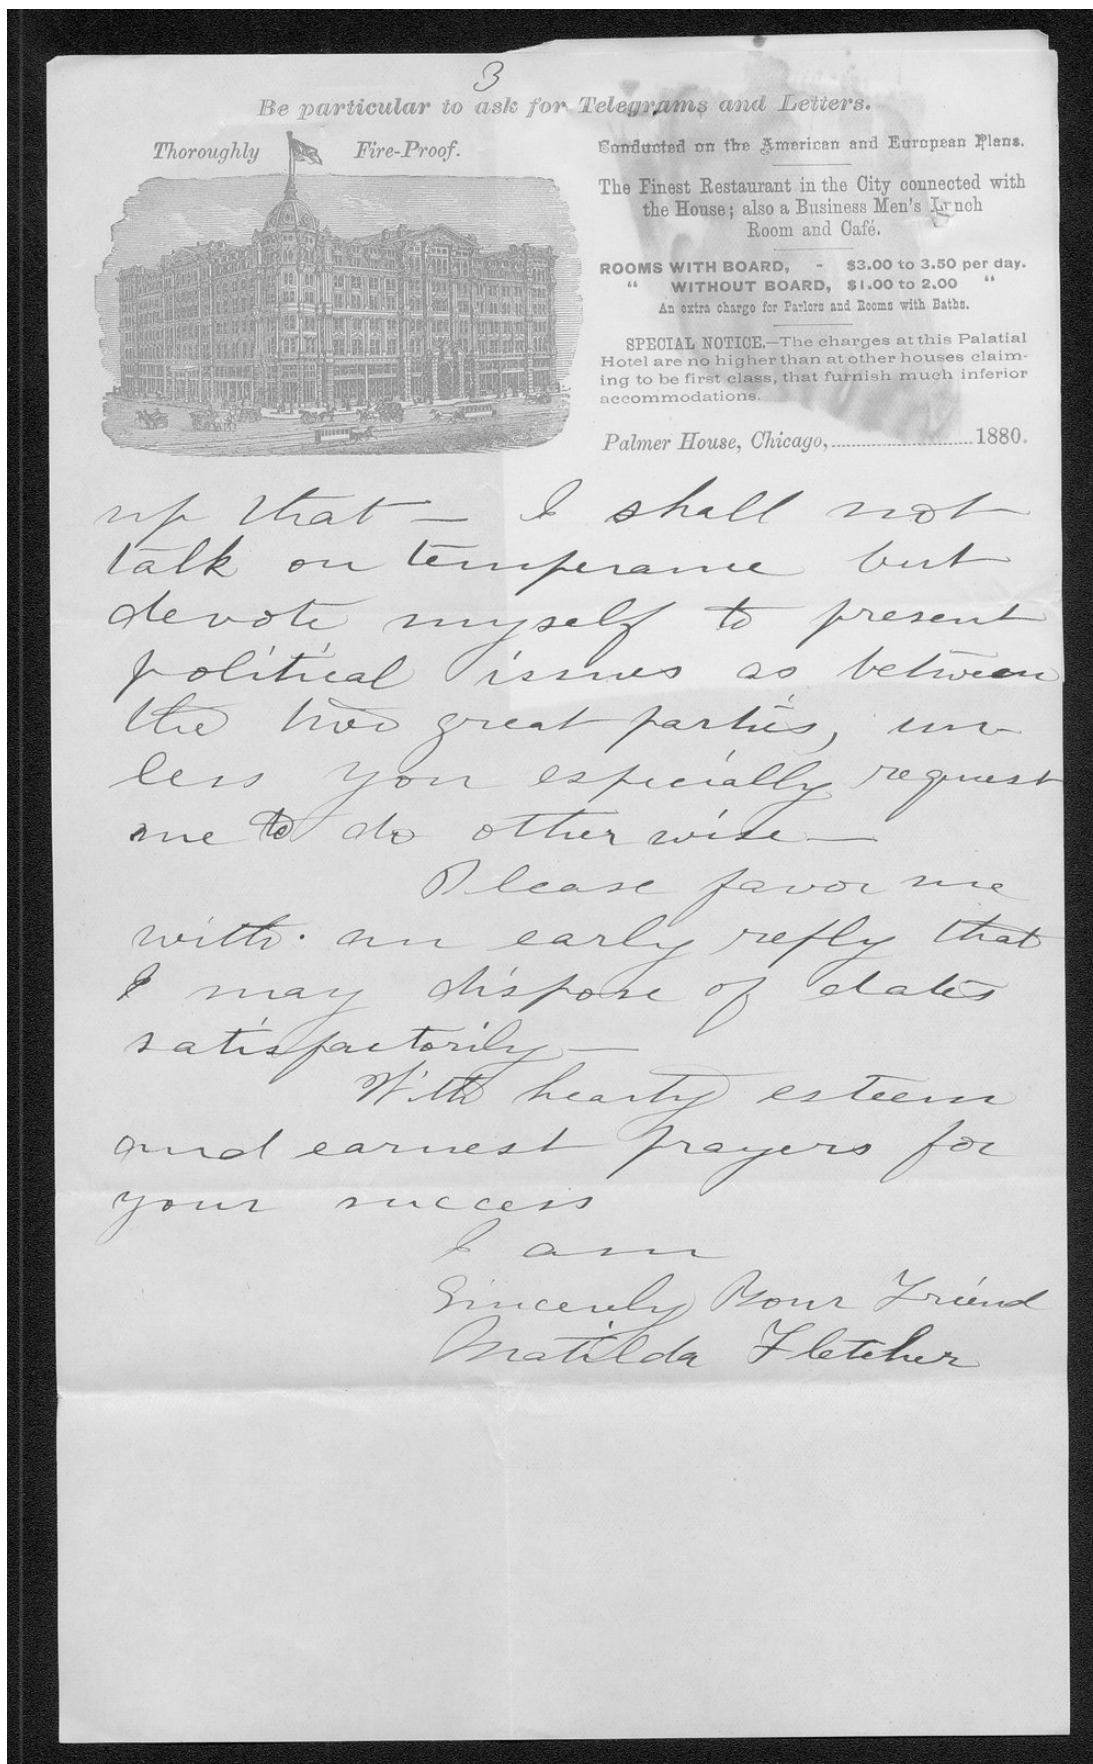 3
Be particular to ask for Telegrams and Letters.
Thoroughly Fire-Proof.
Conducted on the American and European Plans.
The Finest Restaurant in the City connected with
the House; also a Business Men's Lunch
Room and Café.
ROOMS WITH BOARD, - $3.00 to 3.50 per day.
" WITHOUT BOARD, $1.00 to 2.00 "
An extra charge for Parlors and Rooms with Baths.
SPECIAL NOTICE.—The charges at this Palatial
Hotel are no higher than at other houses claim-
ing to be first class, that furnish much inferior
accommodations.
Palmer House, Chicago,....................1880.
up that — I shall not
talk on temperance but
devote myself to present
political issues as between
the two great parties, un-
less you especially request
me to do otherwise —
Please favor me
with an early reply that
I may dispose of dates
satisfactorily —
With hearty esteem
and earnest prayers for
your success
I am
Sincerely Your Friend
Matilda Fletcher